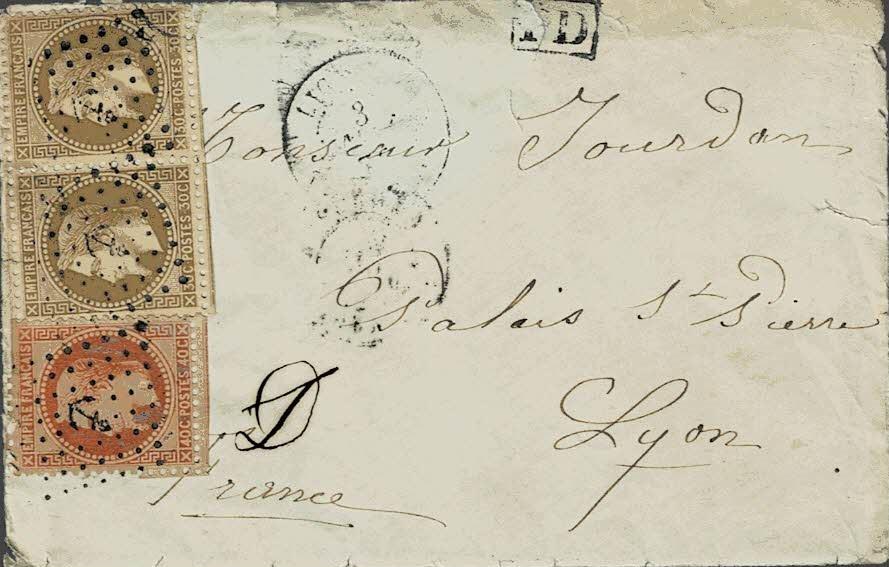 EMPIRE FRANÇAIS
30C POSTES 30C
EMPIRE FRANÇAIS
30C POSTES 30C
EMPIRE FRANÇAIS
40C POSTES 40C
PD
LYON
3
Monsieur Jourdan
Palais St Pierre
Lyon
France